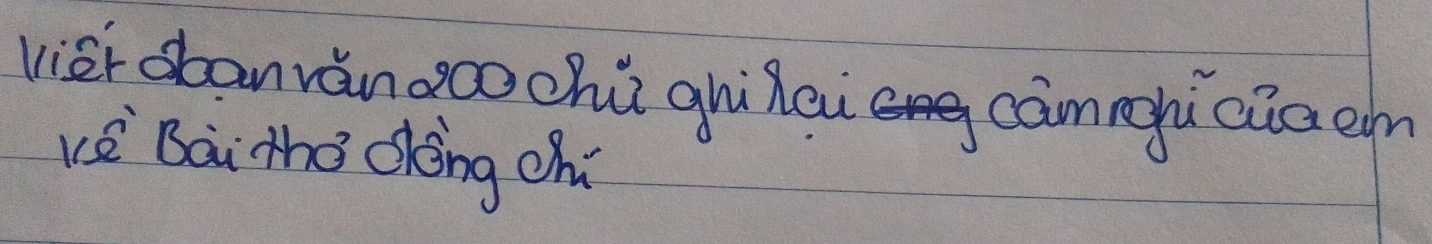 Viết đoạn văn 200 chữ ghi lại cảm nghĩ của em
về Bài thơ đồng chí